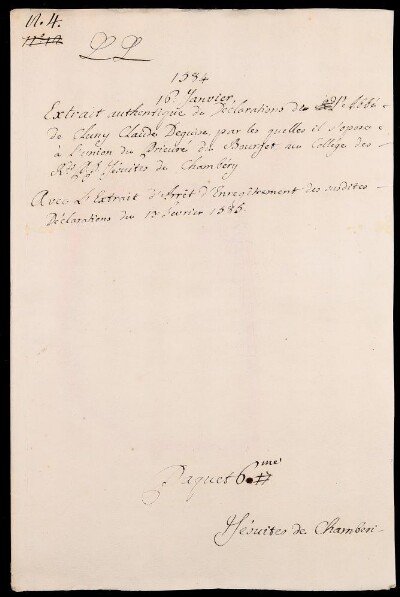 N. 4.
LL
1584
16 Janvier
Extrait authentique de Déclarations de l'Abbé
de Cluny Claude Deguise par les quelles il s'oppose
à l'union du Prieuré du Bourget au College des
Rds PP Jésuites de Chambéry
Avec L'Extrait d'Arrêt d'Enregîtrement des susdites
Déclarations du 13 Fevrier 1585.
Paquet 6.me
Jésuites de Chamberi